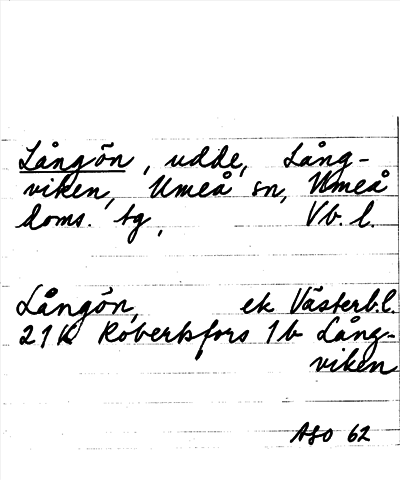 Långön, udde, Lång-
viken, Umeå sn, Umeå
doms. tg, Vb. l.
Långön, ek Västerb.l.
21K Robertsfors 1b Lång-
viken
ASO 62